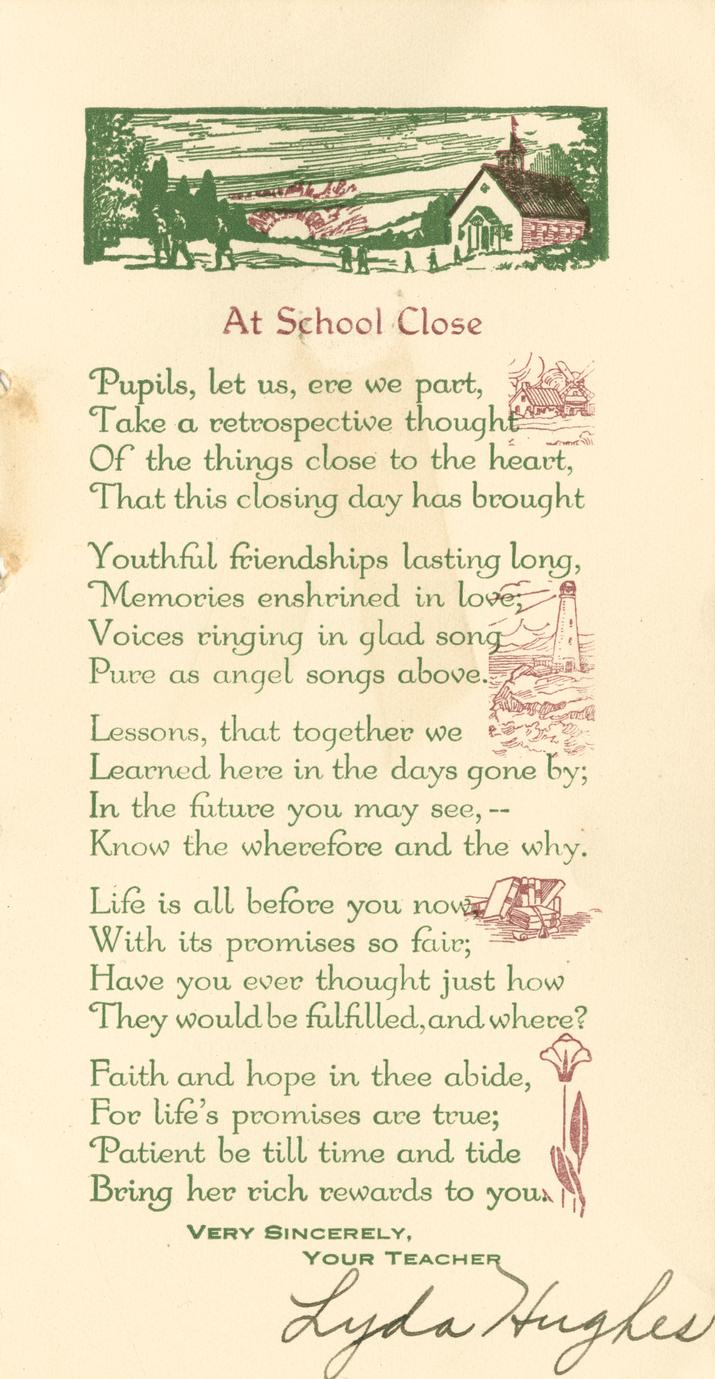 At School Close
Pupils, let us, ere we part,
Take a retrospective thought
Of the things close to the heart,
That this closing day has brought
Youthful friendships lasting long,
Memories enshrined in love;
Voices ringing in glad song
Pure as angel songs above.
Lessons, that together we
Learned here in the days gone by;
In the future you may see, --
Know the wherefore and the why.
Life is all before you now,
With its promises so fair;
Have you ever thought just how
They would be fulfilled, and where?
Faith and hope in thee abide,
For life's promises are true;
Patient be till time and tide
Bring her rich rewards to you.
VERY SINCERELY,
YOUR TEACHER
Lyda Hughes